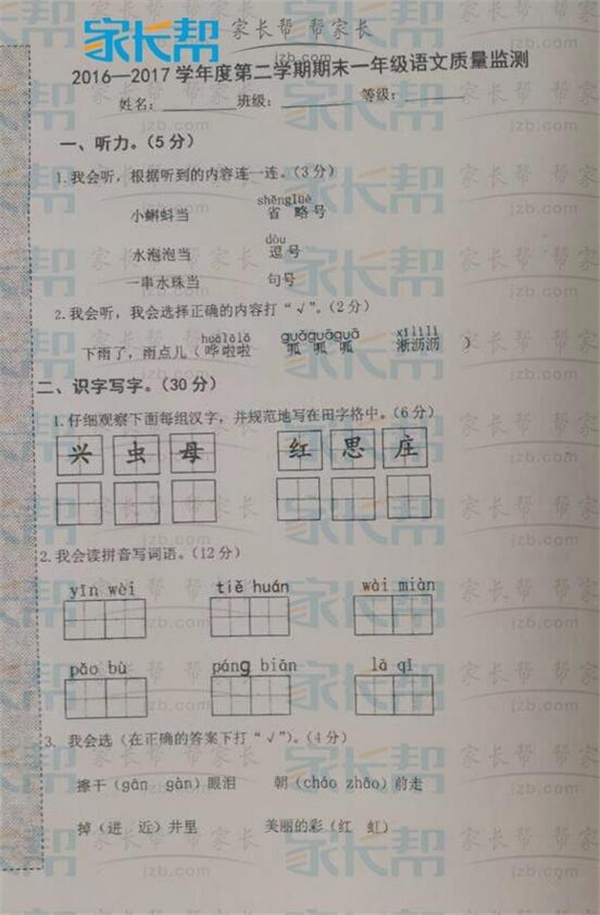 家长帮
2016—2017学年度第二学期期末一年级语文质量监测
姓名:________班级:________ 等级:________
一、听力。(5分)
1.我会听,根据听到的内容连一连。(3分)
shěnglüè
小蝌蚪当 省略号
dòu
水泡泡当 逗号
一串水珠当 句号
2.我会听,我会选择正确的内容打“√”。(2分)
huālālā guāguāguā xīlìlì
下雨了,雨点儿(哗啦啦 呱呱呱 淅沥沥 )
二、识字写字。(30分)
1.仔细观察下面每组汉字,并规范地写在田字格中。(6分)
兴 虫 母 红 思 庄
2.我会读拼音写词语。(12分)
yīn wèi tiě huán wài miàn
pǎo bù páng biān lā qǐ
3. 我会选(在正确的答案下打“√”)。(4分)
擦干(gān gàn)眼泪 朝(cháo zhāo)前走
掉(进 近)井里 美丽的彩(红 虹)
家长帮 帮家长
jzb.com